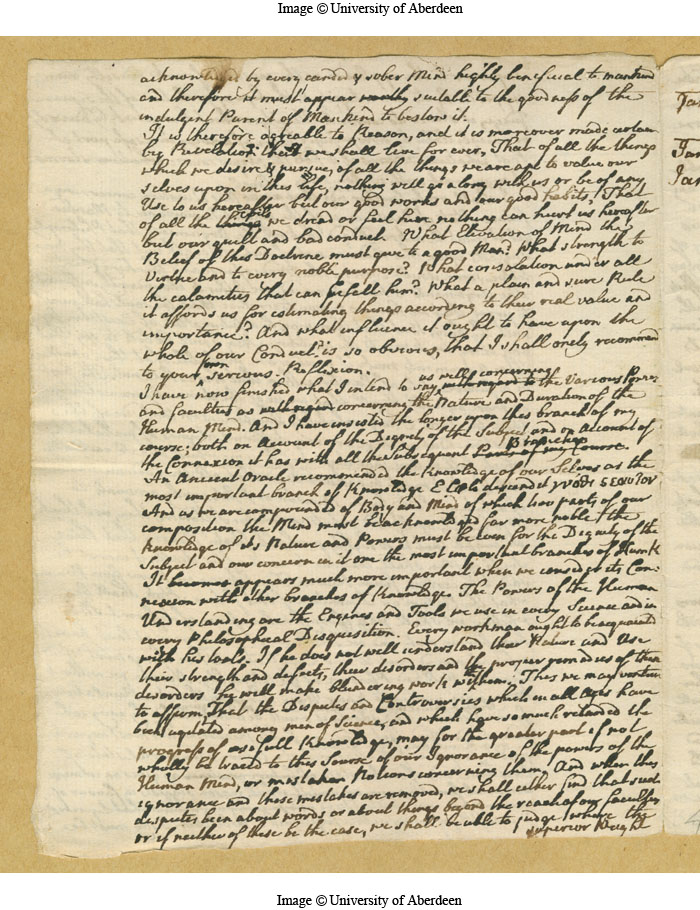 Image © University of Aberdeen
acknowledged by every candid & sober Mind highly beneficial to mankind
and therefore it must appear suitable to the goodness of the
indulgent Parent of Mankind to bestow it.
It is therefore agreable to Reason, and it is moreover made certain
by Revelation that we shall live for ever, That of all the things
which we desire & pursue, of all the things we are apt to value our
selves upon in this life, nothing will go along with us or be of any
Use to us hereafter but our good works and our good habits, That
of all the things we dread or feel here nothing can hurt us hereafter
but our guilt and bad conduct. What Elevation of Mind this
Belief of this Doctrine must give to a good Man? What strength to
Virtue and to every noble purpose? What consolation under all
the calamities that can befall him? What a plain and sure Rule
it affords us for estimating things according to their real value and
importance? And what influence it ought to have upon the
whole of our Conduct? is so obvious, that I shall onely recommend
to your own serious Reflexion.
I have now finished what I intend to say as well concerning the Various Powers
and faculties as concerning the Nature and Duration of the
Human Mind. And I have insisted the longer upon this branch of my
course; both on Account of the Dignity of the Subject and on Account of
the Connexion it has with all the subsequent Branches of my Course.
An Ancient Oracle recommended the Knowledge of our Selves as the
most important branch of Knowledge E Coelo descendit γνωθι σεαυτον
And as we are compounded of Body and Mind of which two parts of our
composition the Mind must be acknowledged far more noble & the
Knowledge of its Nature and Powers must be even for the Dignity of the
Subject and our concern in it one the most important branches of Humk
It appears much more important when we consider its Con-
nexion with other branches of Knowledge. The Powers of the Human
Understanding are the Engines and Tools we use in every Science and in
every Philosophical Disquisition. Every workman ought to be acquainted
with his tools. If he does not well understand their Nature and Use
their strength and defects, their disorders and the proper remedies of these
disorders he will make blundering work with them. Thus we may venture
to affirm, That the Disputes and Controversies which in all Ages have
been agitated among men of Science, and which have so much retarded the
progress of usefull Knowledge, may for the greater part if not
wholly be traced to this Source of our Ignorance of the powers of the
Human Mind, or mistaken Notions concerning them, And when this
ignorance and these mistakes are removed, we shall either find that such
disputes been about words or about things beyond the reach of our faculties
or if neither of these be the case, we shall be able to judge where the
superior Weight
Image © University of Aberdeen